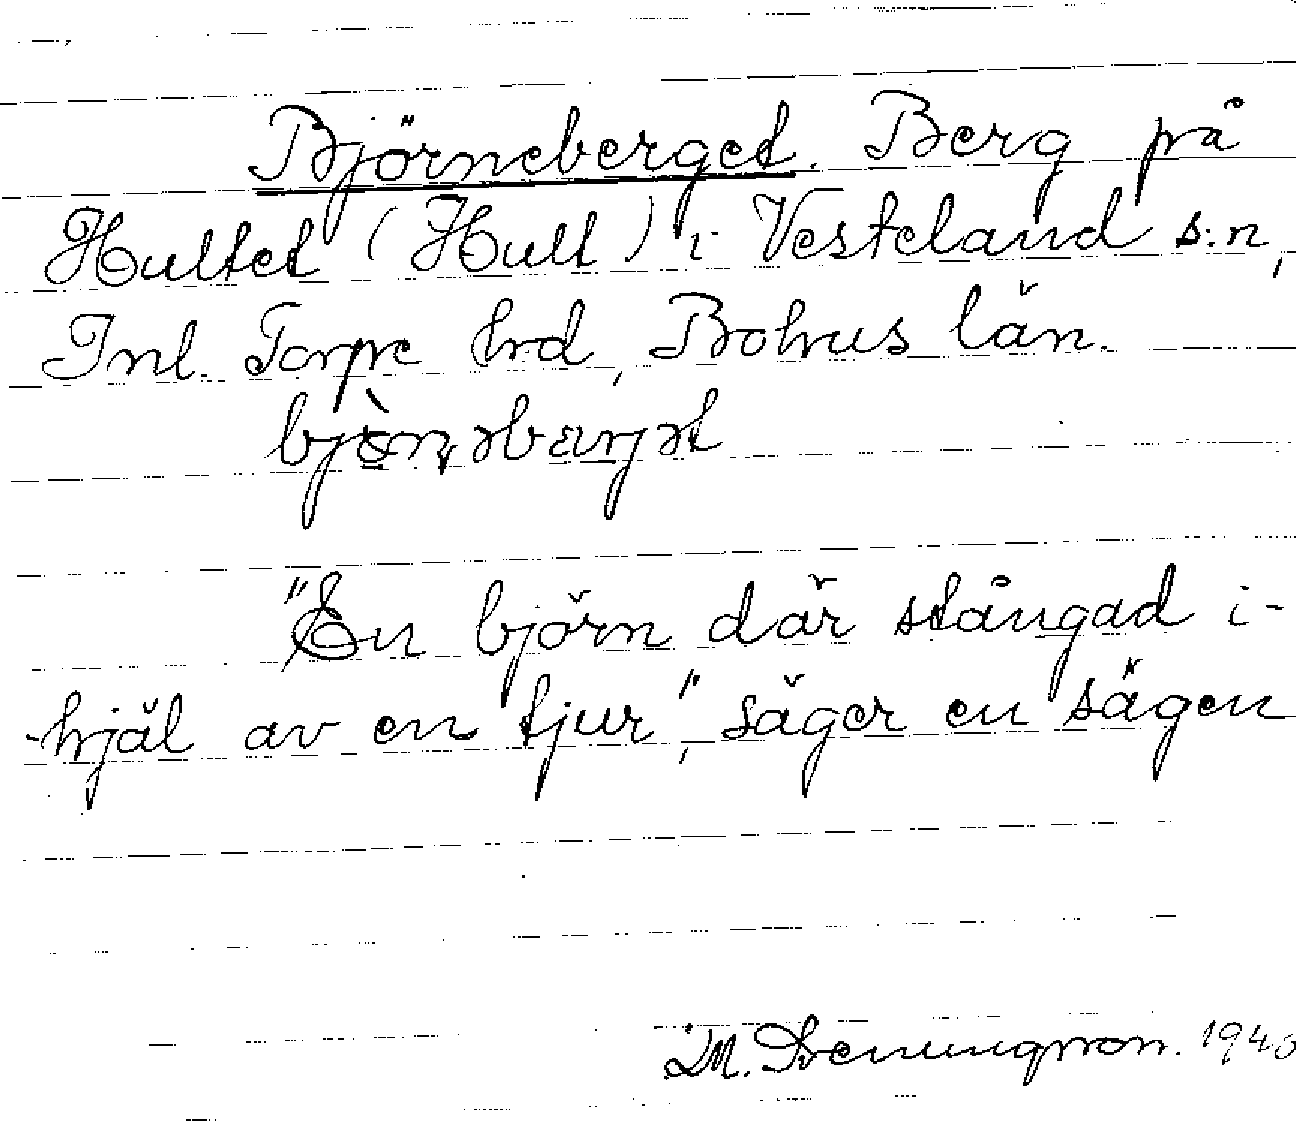 Björneberget. Berg på
Hultet (Hult) i Vesteland s:n,
Inl. Torpe hrd, Bohus län.
bjö̀rnəbærjət
"En björn där stångad i-
-hjäl av en tjur", säger en sägen
M. Svenungsson. 1940